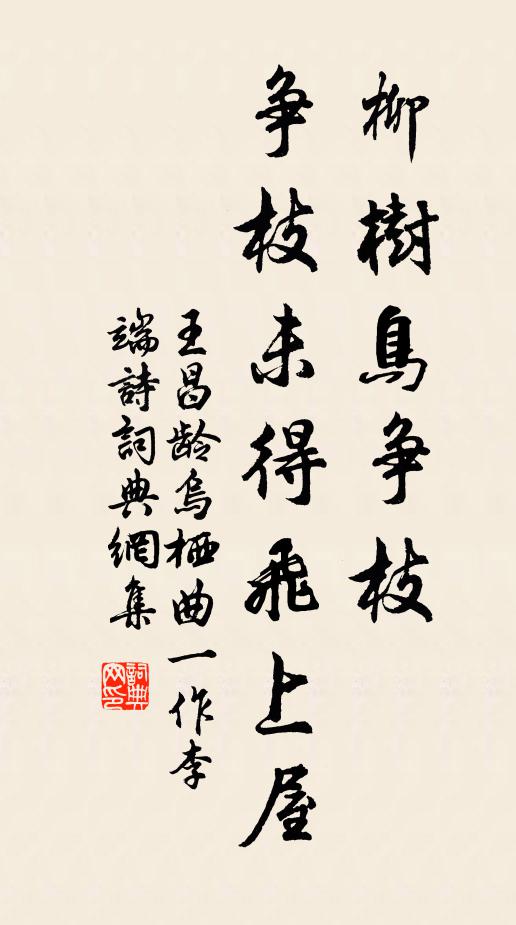 柳樹鳥争枝
争枝未得飛上屋
王昌齡烏栖曲一作李
端詩詞典網集
詞典
网印